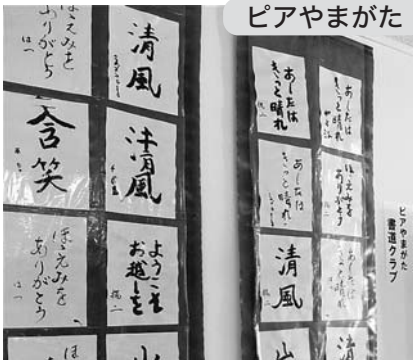 ピアやまがた
ほゝえみを
ありがとう
清風
含笑
清風
ほゝえみを
ありがとう
ようこそ
お越しを
あしたは
きっと晴れ
あしたは
きっと晴れ
あしたは
きっと晴れ
ほゝえみを
ありがとう
清風
あしたは
きっと晴れ
清
ピアやまがた
書道クラブ